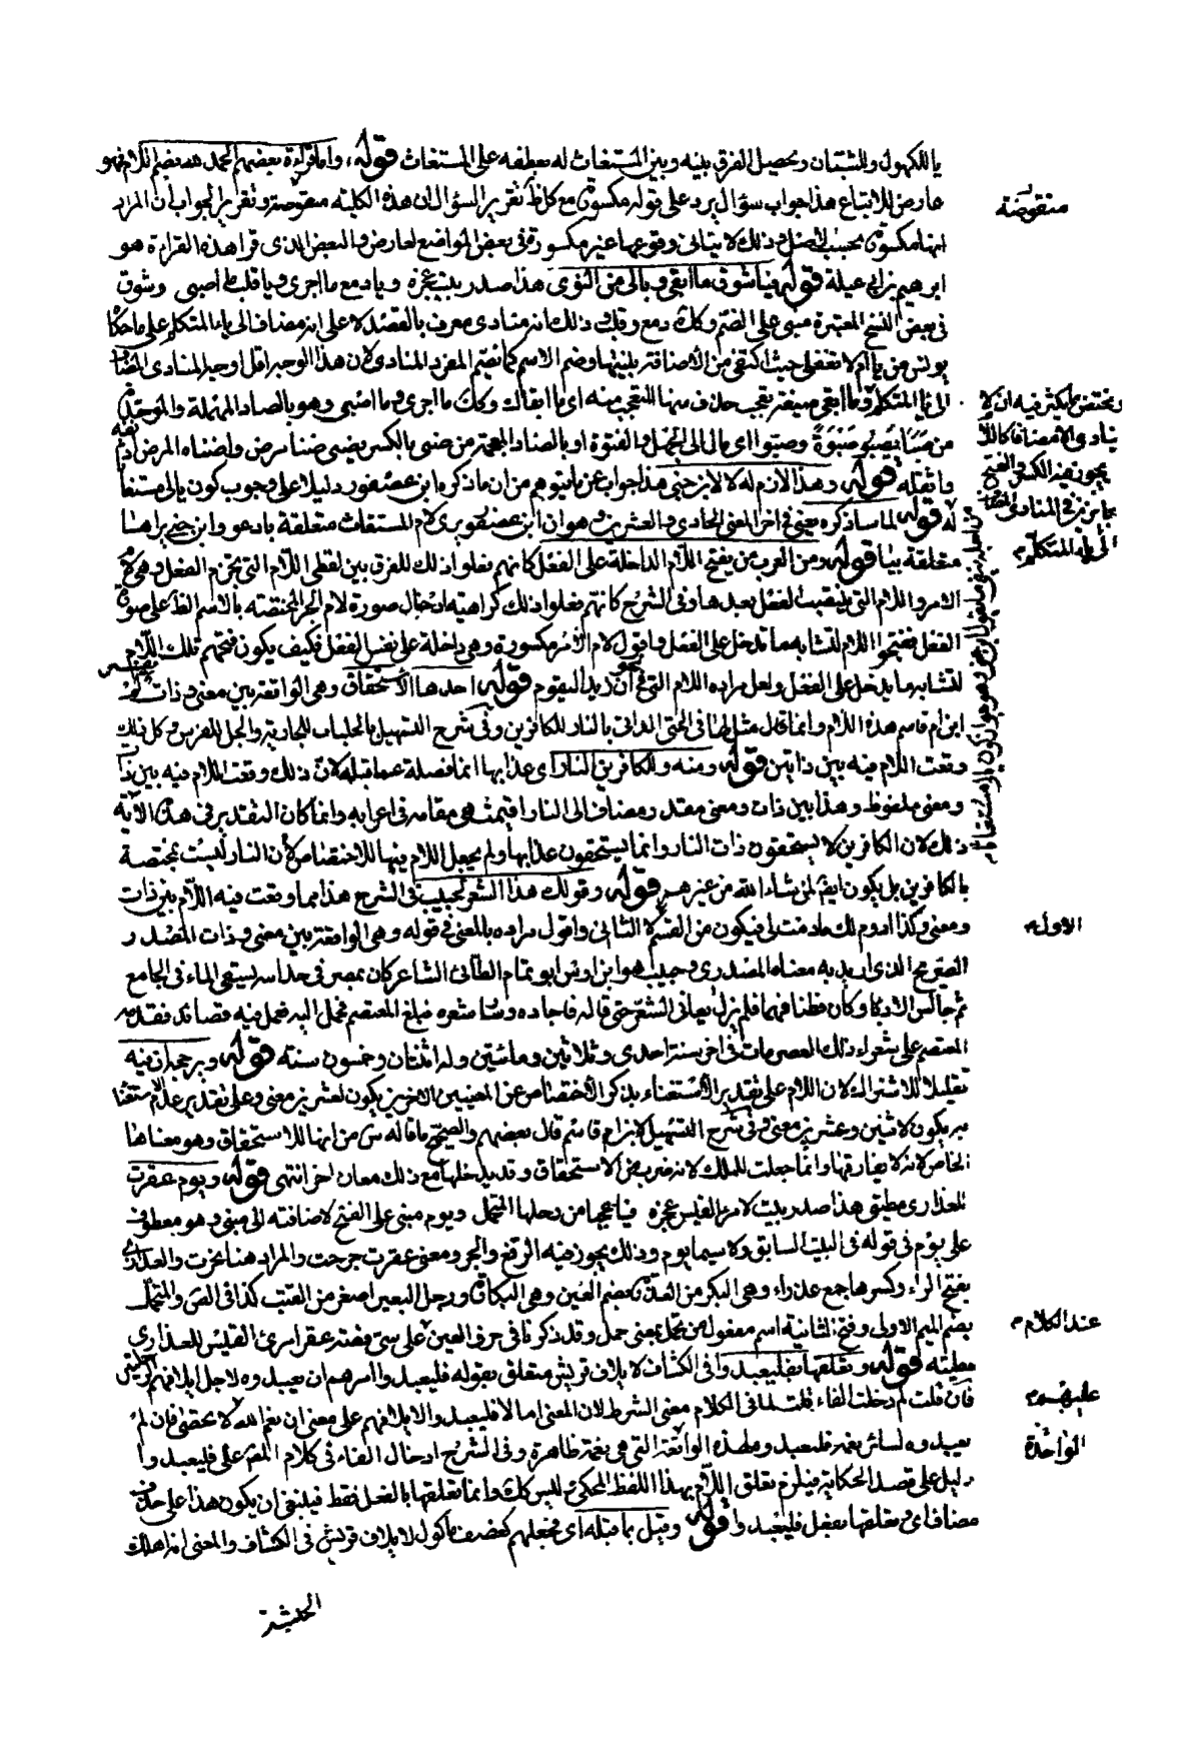 ياللكهول وللشبان وتحصيل الفرق بينه وبين المستغاث له بعطفه على المستغاث قوله واما قراءة بعضهم الحمد لله بضم اللام فهو
عارض للاتباع هذا جواب سؤال يرد على قوله مكسورة مع كل ظاهر تقرير السؤال ان هذه الكلية منقوضة وتقرير الجواب ان المراد
انها مكسورة بحسب الاصل وذلك لا ينافى وقوعها غير مكسورة فى بعض المواضع لعارض والبعض الذى قرا هذه القراءة هو
ابرهيم بن ابى عبلة قوله فيا شوق ما ابقى ويالى من النوى هذا صدر بيت عجزه ويا دمع ما اجرى ويا قلب ما اصبى وشوق
فى بعض النسخ المعتبرة مبنى على الضم وكذا دمع وقلب وذلك انه منادى معرف بالقصد لا على انه مضاف الى ياء المتكلم على ما حكاه
يونس من يا ام لا تفعلى حيث اكتفى من الاضافة بنيتها وضم الاسم كما يضم المفرد المنادى لان هذا الوجه اقل اوجه المنادى المضاف
الى يا المتكلم وما ابقى صيغة تعجب حذف منها المتعجب منه اى ما ابقاك وكذا ما اجرى وما اصبى وهو بالصاد المهملة والموحدة
من صبا يصبو صبوة وصبوا اى مال الى الجهل والفتوة او بالضاد المعجمة من ضنى بالكسر يضنى ضنا مرض واضناه المرض ادنفه
واثقله قوله وهذا لازم له لا لابن جنى هذا جواب عما يتوهم من ان ما ذكره ابن عصفور دليلا على وجوب كون يالى مستغاثا
له قوله لما ساذكره يعنى فى اخر المعنى الحادى والعشرين وهو ان ابن عصفور يرى لام المستغاث متعلقة بادعو وابن جنى يراها
متعلقة بيا قوله ومن العرب من يفتح اللام الداخلة على الفعل كانهم فعلوا ذلك للفرق بين لفظى اللام التى تجزم الفعل وهى لام
الامر واللام التى ينتصب الفعل بعدها وفى الشرح كانهم فعلوا ذلك كراهية ادخال صورة لام الجر المختصة بالاسم لفظا على صورة
الفعل ففتحوا اللام لتشابه ما تدخل على الفعل واقول لام الامر مكسورة وهى داخلة على نفس الفعل فكيف يكون فتحهم تلك اللام
لتشابه ما يدخل على الفعل ولعل مراده اللام التى فى نحو ان زيدا ليقوم قوله احدها الاستحقاق وهى الواقعة بين معنى وذات
ابن ام قاسم هذه اللام وانما قال مثل لها فى الجنى الدانى بالنار للكافرين وفى شرح التسهيل بالجلباب للجارية والجل للفرس وكل ذلك
وقعت اللام فيه بين ذاتين قوله ومنه وللكافرين النار اى عذابها انما فصله عما قبله لان ذلك وقعت اللام فيه بين ذات
ومعنى ملفوظ وهذا بين ذات ومعنى مقدر مضاف الى النار اقيمت هى مقامه فى اعرابه وانما كان التقدير فى هذه الآية
ذلك لان الكافرين لا يستحقون ذات النار وانما يستحقون عذابها ولم يجعل اللام فيها للاختصاص لان النار ليست بمختصة
بالكافرين بل يكون ايضا لمن شاء الله من غيرهم قوله وقولك هذا الشعر لحبيب فى الشرح هذا مما وقعت فيه اللام بين ذات
ومعنى وكذا ادوم لك ما دمت لى فيكون من القسم الثانى واقول مراده بالمعنى فى قوله وهى الواقعة بين معنى وذات المصدر
الصريح الذى اريد به معناه المصدرى وحبيب هو ابن اوس ابو تمام الطائى الشاعر كان بمصر فى حداثته يسقى الماء فى الجامع
ثم جالس الادبا وكان فطنا فهما فلم يزل يعانى الشعر حتى قاله فاجاده وشاع شعره فبلغ المعتصم فحمل اليه فعمل فيه قصائد فقدمه
المعتصم على شعراء ذلك العصر مات فى اخر سنة احدى وثلاثين ومائتين وله اثنتان وخمسون سنة قوله ويرجحه ان فيه
تقليلا للاشتراك لان اللام على تقدير الاستغناء بذكر الاختصاص عن المعنيين الاخرين يكون لعشرين معنى وعلى تقدير عدم الاستغناء
به يكون لاثنين وعشرين معنى وفى شرح التسهيل لابن ام قاسم قال بعضهم والصحيح ما قاله س من انها للاستحقاق وهو معناها
الخاص لانه لا يفارقها وانما جعلت للملك لانه ضرب من الاستحقاق وقد يدخلها مع ذلك معان اخر انتهى قوله ويوم عقرت
للعذارى مطيتى هذا صدر بيت لامرئ القيس عجزه فيا عجبا من رحلها المتحمل ويوم مبنى على الفتح لاضافته الى مبنى وهو معطوف
على يوم فى قوله فى البيت السابق ولا سيما يوم وذلك يجوز فيه الرفع والجر ومعنى عقرت جرحت والمراد هنا نحرت والعذارى
بفتح الراء وكسرها جمع عذراء وهى البكر من العذرة بضم العين وهى البكارة ورحل البعير اصغر من القتب كذا فى الص والمتحمل
بضم الميم الاولى وفتح الثانية اسم مفعول من تحمل بمعنى حمل وقد ذكرنا فى حرف العين على شئ قصة عقر امرئ القيس للعذارى
مطيته قوله وتعلقها بفليعبدوا فى الكشاف لايلاف قريش متعلق بقوله فليعبدوا امرهم ان يعبدوه لاجل ايلافهم الرحلتين
فان قلت لم دخلت الفاء قلت لما فى الكلام معنى الشرط لان المعنى اما لا فليعبدوا لايلافهم على معنى ان نعم الله لا تحصى فان لم
يعبدوه لسائر نعمه فليعبدوه لهذه الواقعة التى هى نعمة ظاهرة وفى الشرح ادخال الفاء فى كلام المصنف على فليعبدوا
دليل على قصد الحكاية فيلزم تعلق اللام بهذا اللفظ المحكى وليس كذلك وانما تعلقها بالفعل فقط فينبغى ان يكون هذا على حذف
مضاف اى وتعلقها بفعل فليعبدوا قوله وقيل بما قبله اى فجعلهم كعصف ماكول لايلاف قريش فى الكشاف والمعنى انه اهلك
الحبشة
منقوضة
ويختص
ينادى الا مضافا كاللا
يجوز فيه الكسر والفتح
جايزين فى المنادى المضاف
الى ياء المتكلم
الاول
عند الكلام
عليهم
الواحدة